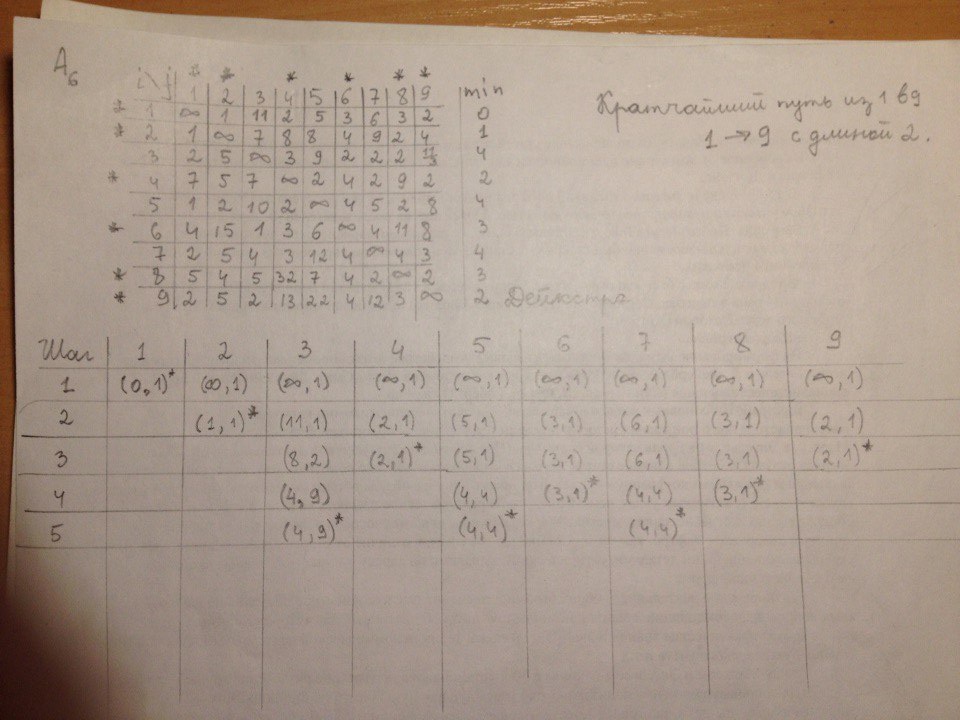 A6
* * * * * *
i\j 1 2 3 4 5 6 7 8 9 min
* 1 ∞ 1 11 2 5 3 6 3 2 0
* 2 1 ∞ 7 8 8 4 9 2 4 1
3 2 5 ∞ 3 9 2 2 2 4
* 4 7 5 7 ∞ 2 4 2 9 2 2
5 1 2 10 2 ∞ 4 5 2 8 4
* 6 4 15 1 3 6 ∞ 4 11 8 3
7 2 5 4 3 12 4 ∞ 4 3 4
* 8 5 4 5 32 7 4 2 ∞ 2 3
* 9 2 5 2 13 22 4 12 3 ∞ 2 Дейкстра
Кратчайший путь из 1 в 9
1 → 9 с длиной 2.
Шаг 1 2 3 4 5 6 7 8 9
1 (0,1)* (∞,1) (∞,1) (∞,1) (∞,1) (∞,1) (∞,1) (∞,1) (∞,1)
2 (1,1)* (11,1) (2,1) (5,1) (3,1) (6,1) (3,1) (2,1)
3 (8,2) (2,1)* (5,1) (3,1) (6,1) (3,1) (2,1)*
4 (4,9) (4,4) (3,1)* (4,4) (3,1)*
5 (4,9)* (4,4)* (4,4)*